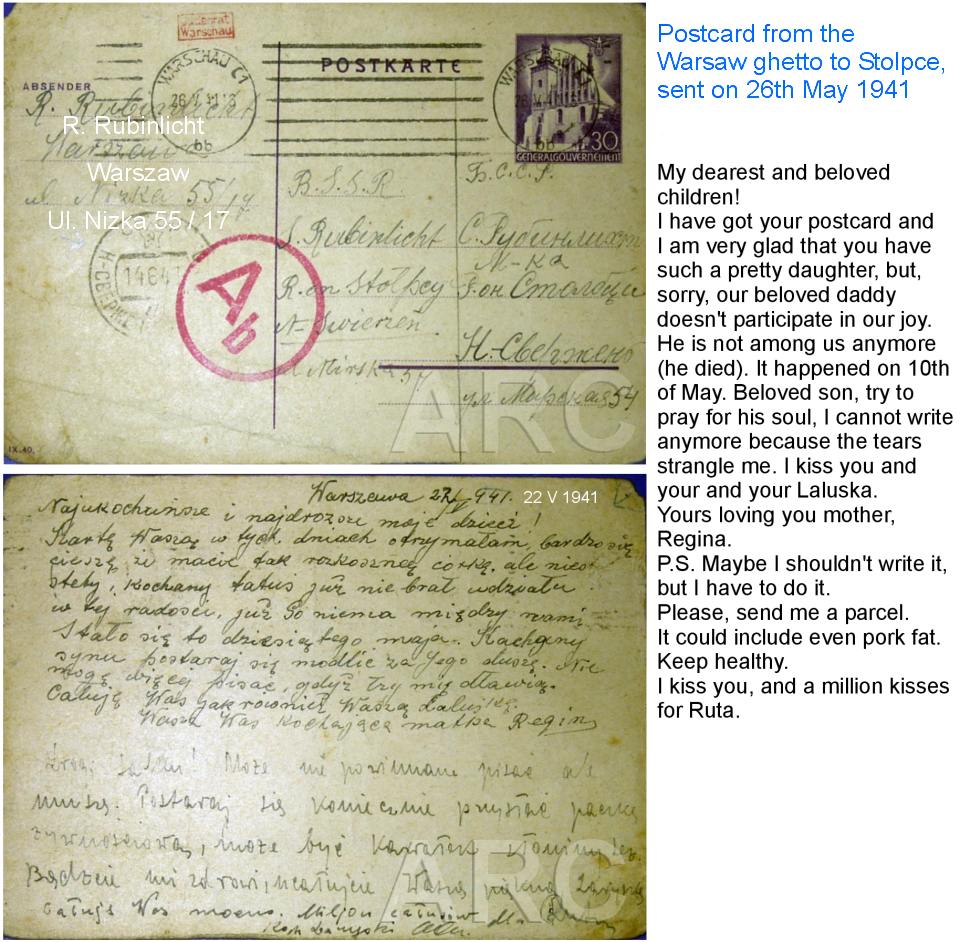 Judenrat
Warschau
WARSCHAU C1
POSTKARTE
WARSCHAU C1
ABSENDER
R. Rubinlicht
Warszawa
ul. Nizka 55/17
R. Rubinlicht
Warszaw
Ul. Nizka 55 / 17
30
GENERALGOUVERNEMENT
bb
bb
B.S.S.R.
Б.С.С.Р.
S. Rubinlicht
С. Рубинлихт
М-ка
R-on Stolpcy
Р-он Столбцы
N-Swierzen
Н-Свержень
Mirska 54
ул. Мирская 54
Ab
IX.40.
ARC
Warszawa 22/V 941.
22 V 1941
Najukochańsze i najdroższe moje dzieci!
Kartę Waszą w tych dniach otrzymałam, bardzo się
cieszę, że macie tak rozkoszną córkę, ale nies-
stety, kochany tatuś już nie brał udziału
w tej radości, już Go niema między nami
Stało się to dziesiątego maja. Kochany
synu postaraj się modlić za Jego duszę. Nie
mogę więcej pisać, gdyż łzy mię dławią.
Całuję Was jak również Waszą Laluśkę.
Wasza Was kochająca matka Regina
Może nie powinnam pisać ale
muszę. Postaraj się koniecznie przysłać paczkę
żywnościową, może być kawałek słoniny też.
Bądźcie mi zdrowi, ucałujcie Waszą piękną
całuję Was mocno. Miljon całusów dla
ARC
Postcard from the
Warsaw ghetto to Stolpce,
sent on 26th May 1941
My dearest and beloved
children!
I have got your postcard and
I am very glad that you have
such a pretty daughter, but,
sorry, our beloved daddy
doesn't participate in our joy.
He is not among us anymore
(he died). It happened on 10th
of May. Beloved son, try to
pray for his soul, I cannot write
anymore because the tears
strangle me. I kiss you and
your and your Laluska.
Yours loving you mother,
Regina.
P.S. Maybe I shouldn't write it,
but I have to do it.
Please, send me a parcel.
It could include even pork fat.
Keep healthy.
I kiss you, and a million kisses
for Ruta.